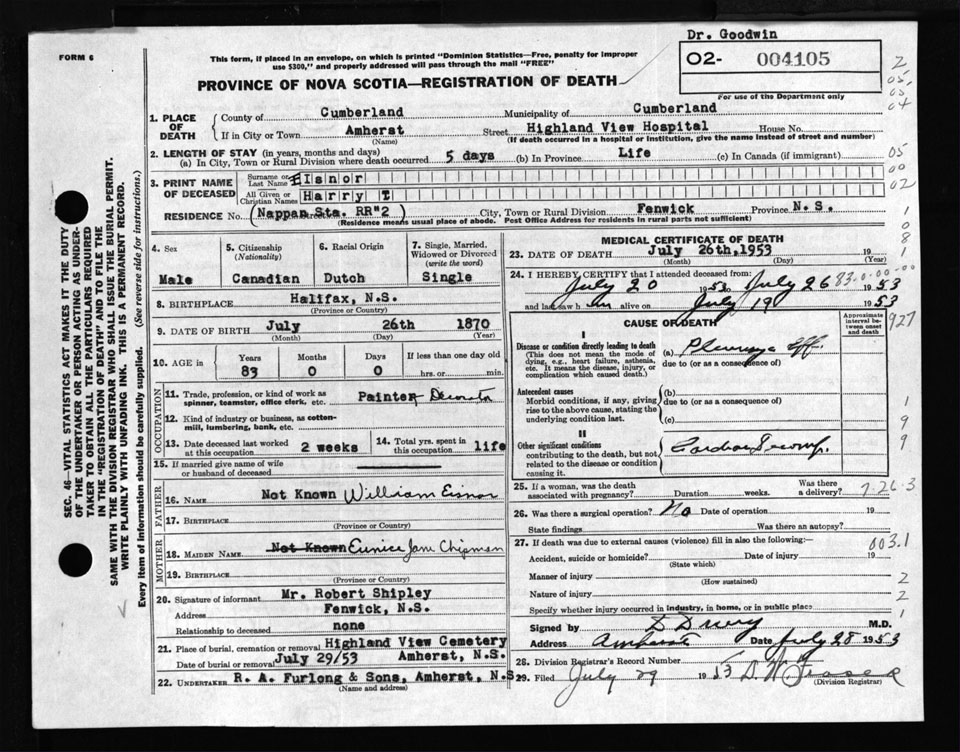 Dr. Goodwin
FORM 6
This form, if placed in an envelope, on which is printed "Dominion Statistics—Free, penalty for improper
use $300," and properly addressed will pass through the mail "FREE"
02- 004105
For use of the Department only
PROVINCE OF NOVA SCOTIA—REGISTRATION OF DEATH
1. PLACE OF DEATH
County of Cumberland Municipality of Cumberland
If in City or Town Amherst Street Highland View Hospital House No.
(Name) (If death occurred in a hospital or institution, give the name instead of street and number)
2. LENGTH OF STAY (in years, months and days)
(a) In City, Town or Rural Division where death occurred 5 days (b) In Province Life (c) In Canada (if immigrant)
3. PRINT NAME OF DECEASED
Surname or Last Name Eisnor
All Given or Christian Names Harry I
RESIDENCE No. (Nappan Sta. RR#2) City, Town or Rural Division Fenwick Province N.S.
(Residence means usual place of abode. Post Office Address for residents in rural parts not sufficient)
4. Sex Male
5. Citizenship (Nationality) Canadian
6. Racial Origin Dutch
7. Single, Married, Widowed or Divorced (write the word) Single
8. BIRTHPLACE Halifax, N.S.
(Province or County)
9. DATE OF BIRTH July 26th 1870
(Month) (Day) (Year)
10. AGE in Years Months Days If less than one day old
83 0 0 hrs. or min.
OCCUPATION
11. Trade, profession, or kind of work as spinner, teamster, office clerk, etc. Painter Decorator
12. Kind of industry or business, as cotton-mill, lumbering, bank, etc.
13. Date deceased last worked at this occupation 2 weeks
14. Total yrs. spent in this occupation life
15. If married give name of wife or husband of deceased
FATHER
16. NAME Not Known William Eisnor
17. BIRTHPLACE
(Province or County)
MOTHER
18. MAIDEN NAME Not Known Eunice Jane Chipman
19. BIRTHPLACE
(Province or County)
20. Signature of informant Mr. Robert Shipley
Address Fenwick, N.S.
Relationship to deceased none
21. Place of burial, cremation or removal Highland View Cemetery
Date of burial or removal July 29/53 Amherst, N.S.
22. UNDERTAKER R. A. Furlong & Sons, Amherst, N.S.
(Name and address)
MEDICAL CERTIFICATE OF DEATH
23. DATE OF DEATH July 26th, 1953 19
(Month) (Day) (Year)
24. I HEREBY CERTIFY that I attended deceased from:
July 20 1953 to July 26 1953
and last saw him alive on July 19 1953
CAUSE OF DEATH
Approximate interval between onset and death
I
Disease or condition directly leading to death
(This does not mean the mode of dying, e.g., heart failure, asthenia, etc. It means the disease, injury, or complication which caused death.)
(a)
due to (or as a consequence of)
Antecedent causes
Morbid conditions, if any, giving rise to the above cause, stating the underlying condition last.
(b)
due to (or as a consequence of)
(c)
II
Other significant conditions
contributing to the death, but not related to the disease or condition causing it.
25. If a woman, was the death associated with pregnancy? Duration weeks. Was there a delivery?
26. Was there a surgical operation? No Date of operation 19
State findings Was there an autopsy?
27. If death was due to external causes (violence) fill in also the following:—
Accident, suicide or homicide? Date of injury 19
(State which)
Manner of injury
(How sustained)
Nature of injury
Specify whether injury occurred in industry, in home, or in public place
Signed by D Drury M.D.
Address Amherst Date July 28 1953
28. Division Registrar's Record Number
29. Filed July 29 1953
(Division Registrar)
SEC. 46—VITAL STATISTICS ACT MAKES IT THE DUTY
OF THE UNDERTAKER OR PERSON ACTING AS UNDER-
TAKER TO OBTAIN ALL THE PARTICULARS REQUIRED
IN THE "REGISTRATION OF DEATH" AND TO FILE THE
SAME WITH THE DIVISION REGISTRAR WHO SHALL ISSUE THE BURIAL PERMIT.
WRITE PLAINLY WITH UNFADING INK. THIS IS A PERMANENT RECORD.
Every item of information should be carefully supplied. (See reverse side for instructions.)
2
05.
03
04
05
00
02
1
0
8
1
83.0.00-00
927
1
9
9
7-26-3
003.1
2
2
1